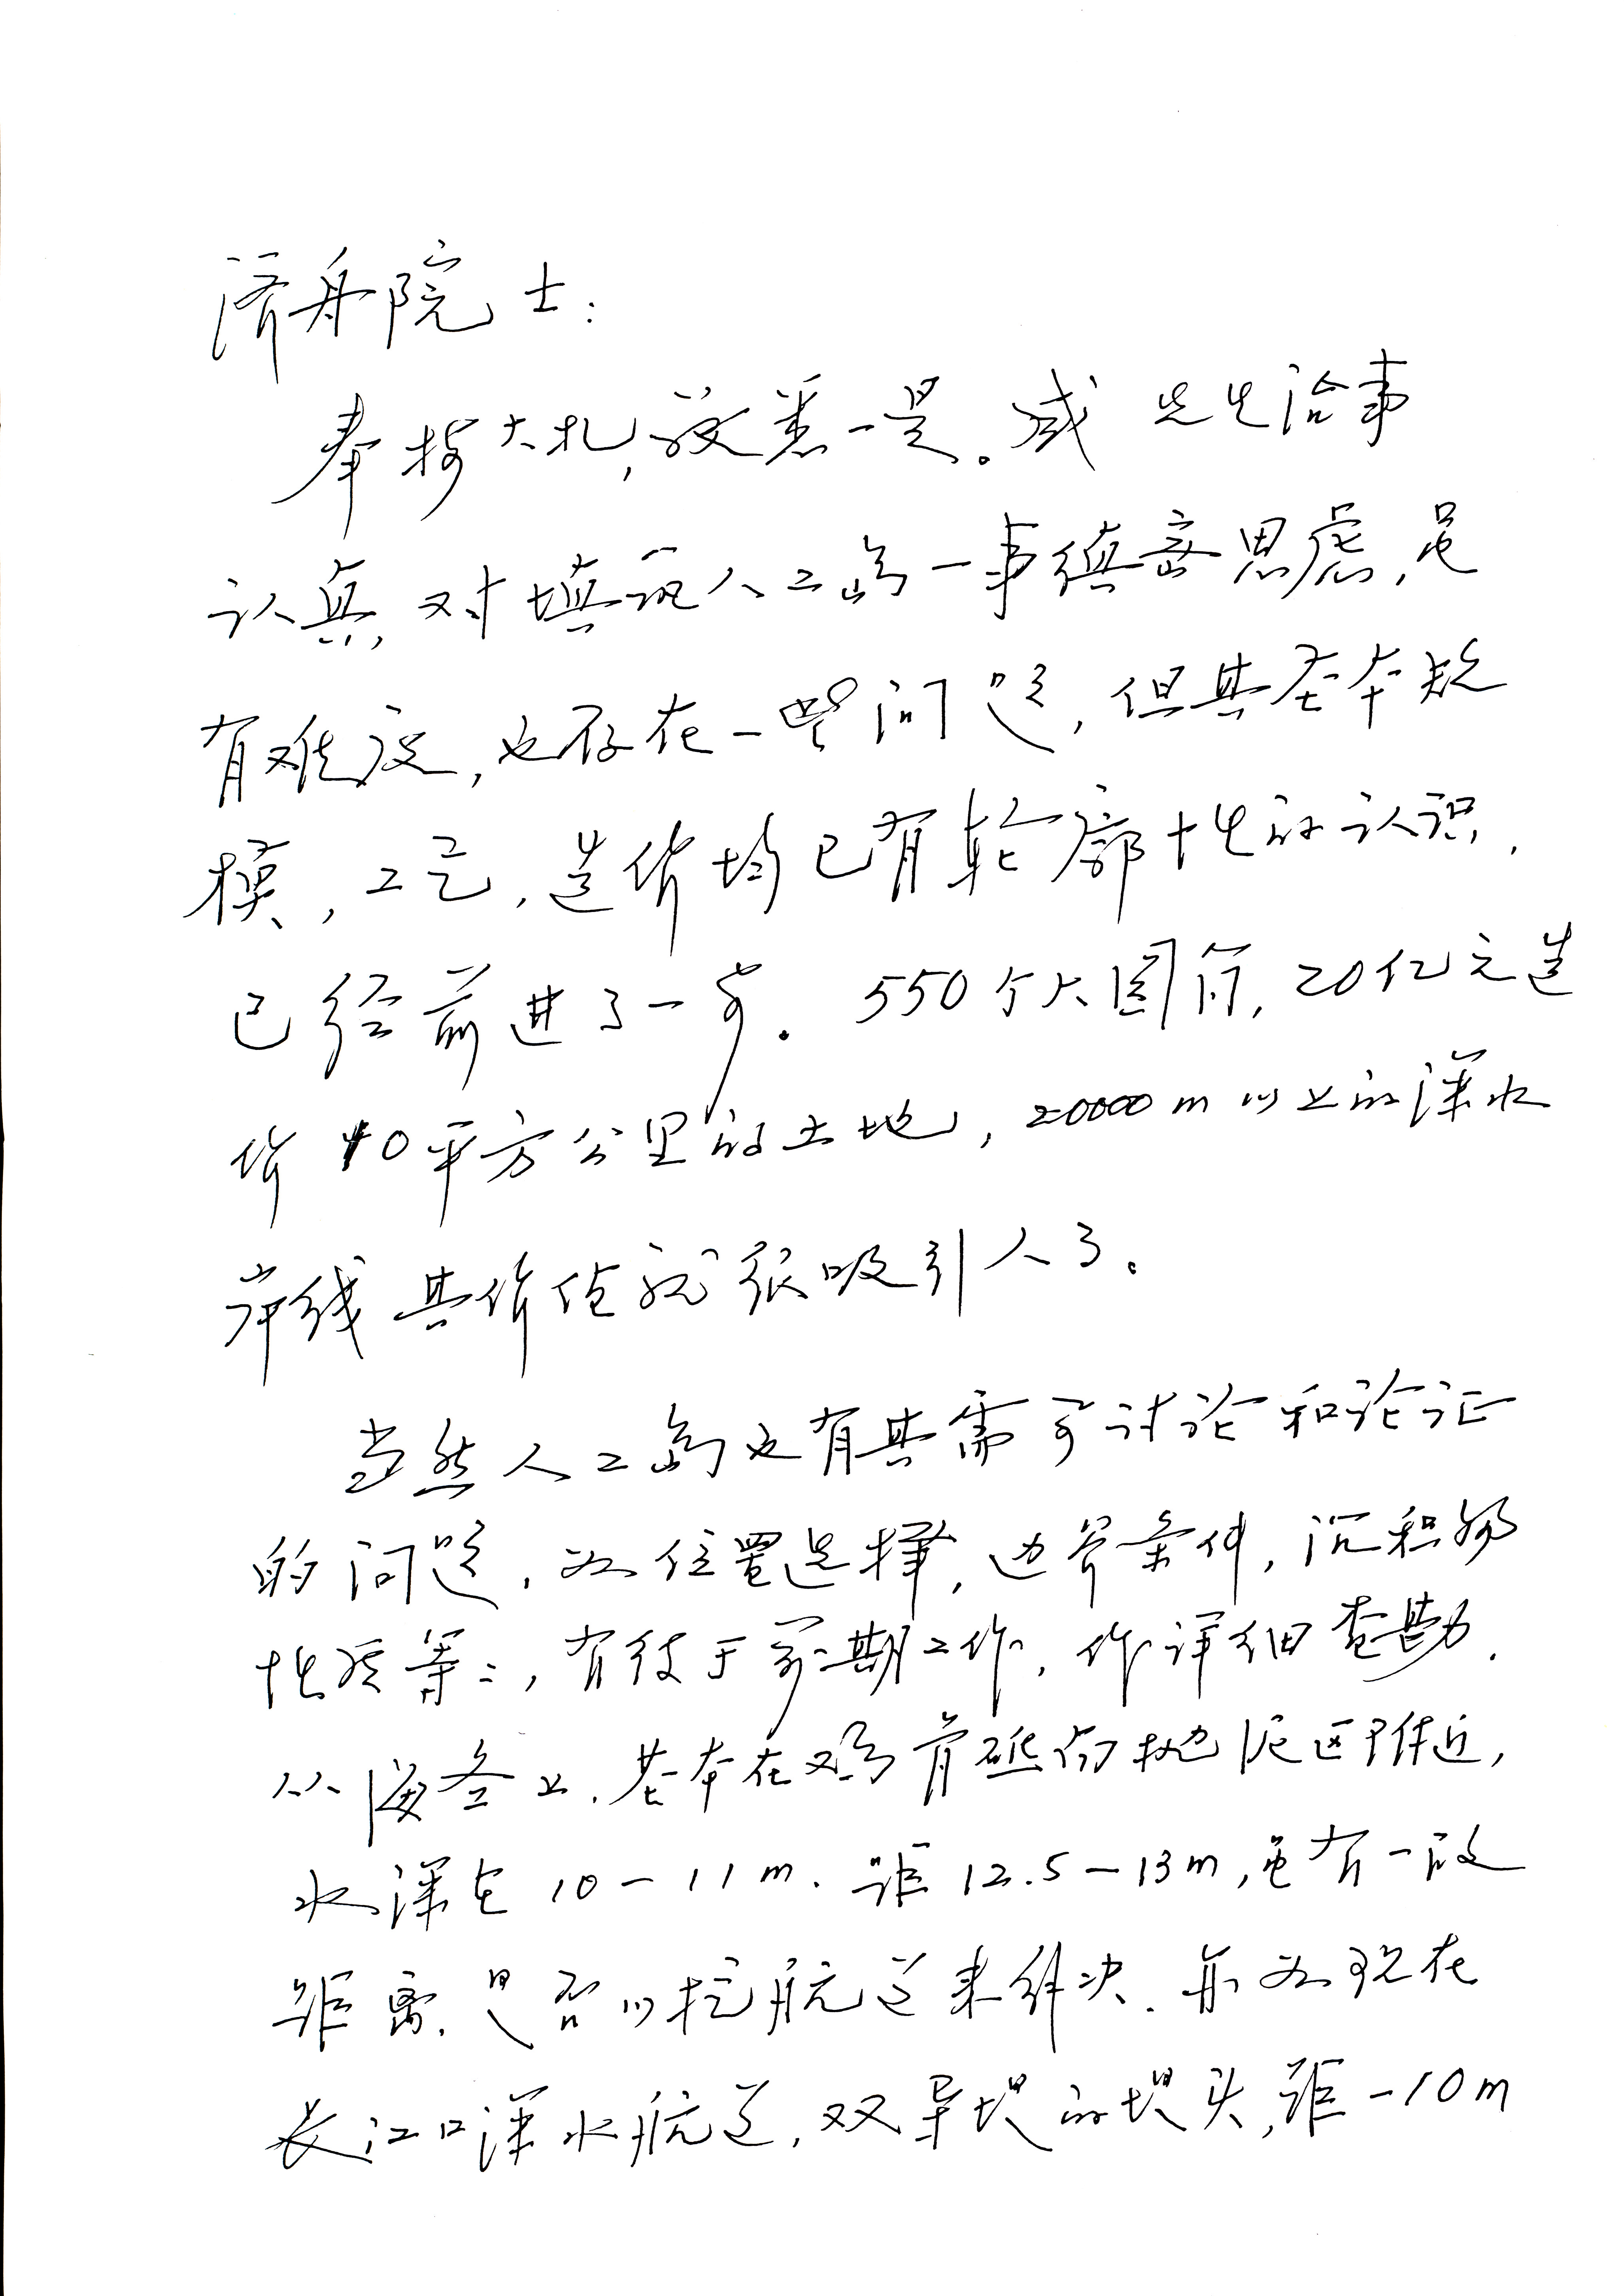 济舟院士：
奉接大札，敬悉一是。感 先生治事
认真，对填筑人工岛一事缜密思虑，虽
有难度，也存在一些问题，但其基本规
模，工艺，造价均已有轮廓性的认识，
已经前进了一步。550个大圆筒，20亿元造
价 10平方公里的土地，20000m以上的深水
岸线 其价值就很吸引人了。
当然人工岛也有其需要讨论和论证
的问题，如位置选择，边界条件，沉积物
性质等等，有待于前期工作，作详细查勘。
从海图上，基本在鸡骨礁向抛泥区附近，
水深在10-11m．距12.5-13m，尚有一段
距离，是否以挖航道来解决．亦如现在
长江口深水航道，双导堤的堤头，距-10m